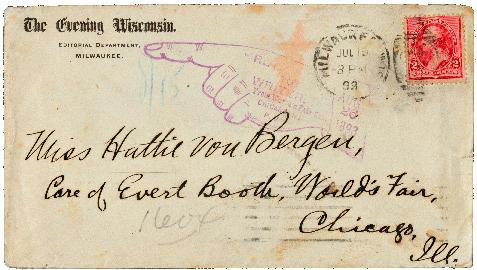 The Evening Wisconsin.
EDITORIAL DEPARTMENT,
MILWAUKEE.
MILWAUKEE
JUL 19
3 PM
93
WRITER
AUG
26
1893
2 2
Miss Hattie von Bergen,
Care of Evert Booth, World's Fair,
Chicago,
Ill.